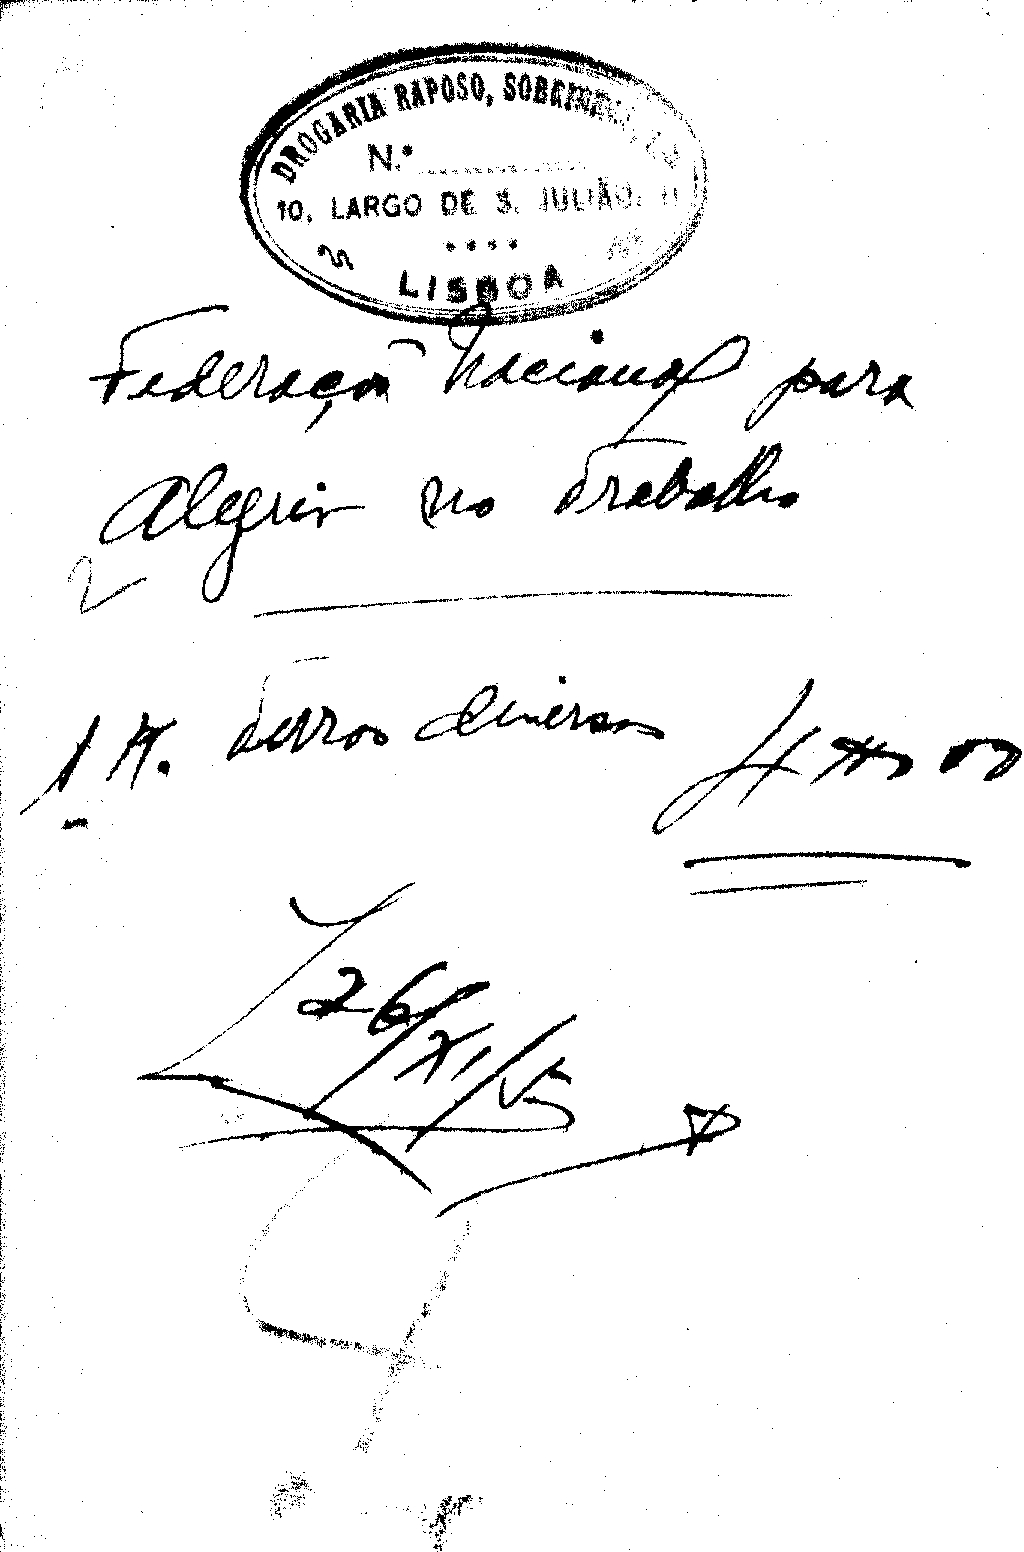 DROGARIA RAPOSO, SOBRINHO, L.DA
N.º
10, LARGO DE S. JULIÃO, 11
LISBOA
Federação Nacional para
Alegria no Trabalho
1 K. Ferros diversos 4$00
26/XI/5